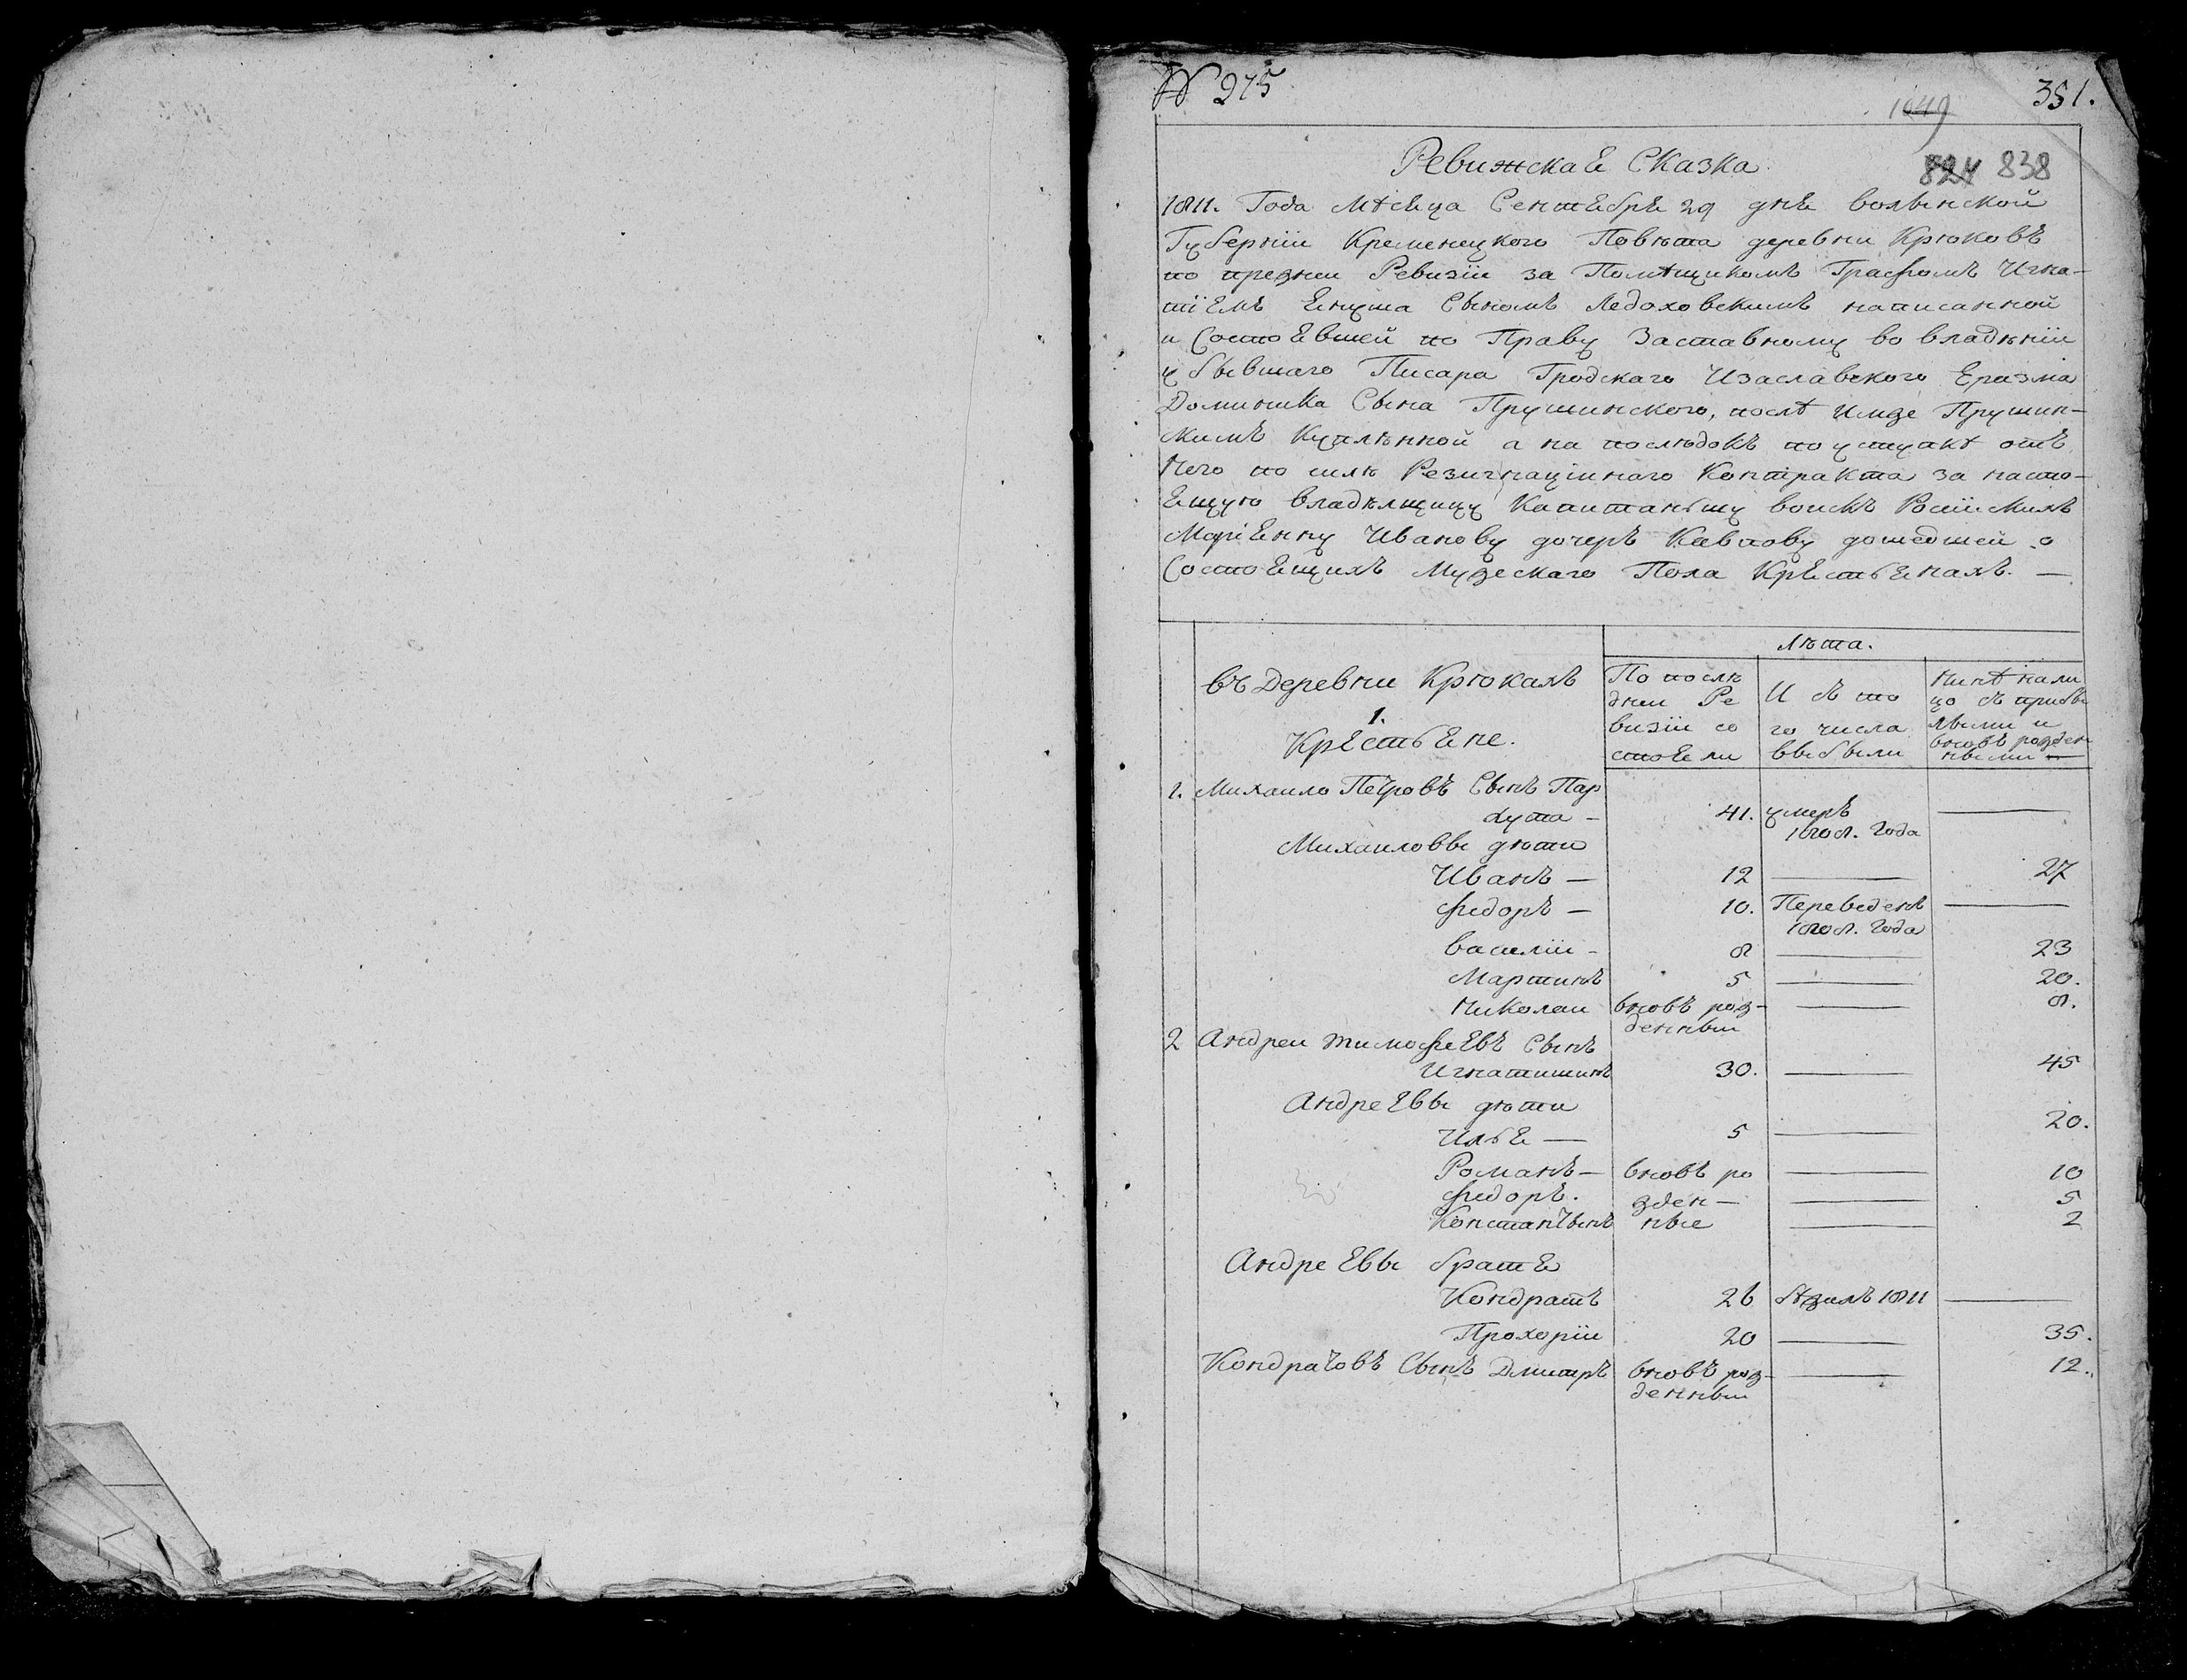 № 275
351.
1049
824 838
Ревижская Сказка.
1811. Года мѣсяца Сентября 29 дня волынской
Губерніи Кременецкого Повѣта деревни Крюковъ
по прежни Ревизіи за Помѣщикомъ Графомъ Игна-
тіемъ Сыномъ Ледоховскимъ написанной
и Состоявшей по Праву Заставному во владѣніи
у бывшаго Писара Гродскаго Изаславского Еразма
Доминика Сына Прушинского, послѣ имже Прушин-
скимъ Купленной а на послѣдокъ по уступкѣ отъ
Него по силѣ Резигнаціинаго Контракта за насто-
ящую владѣлщицу Капитаншу воискъ Росіискихъ
Маріянну Иванову дочеръ дошедшей о
Состоящихъ Мужескаго Пола Крестьянахъ. —
въ Деревни Крюкахъ
1.
Крестьяне.
Лѣта.
По послѣ
дней Ре
визіи со
стояли
Ис то
го числа
выбыли
Нинѣ нали
цо съ прибы
лыми и
вновъ рожден
ными —
1. Михаило Петровъ Сынъ Пар
хута — 41. умеръ —
1808. Года
Михаиловы дѣти
Иванъ — 12 — 27
Федоръ — 10. Переведенъ —
1808. Года
Василіи - 8 — 23
Мартинъ 5 — 20.
Николаи вновъ рож- — 8.
денныи
2 Андреи Тимофеевъ Сынъ
Игнатишинъ 30. — 45
Андреевы дѣти
Илья — 5 — 20.
Романъ — вновъ ро — 10
Федоръ. жден — — 5
Константынъ ные — 2
Андреевы братя
Кондратъ 26 бѣжалъ 1811 —
Прохоріи 20 — 35.
Кондратовъ Сынъ Дмитръ вновъ рож- — 12.
денныи